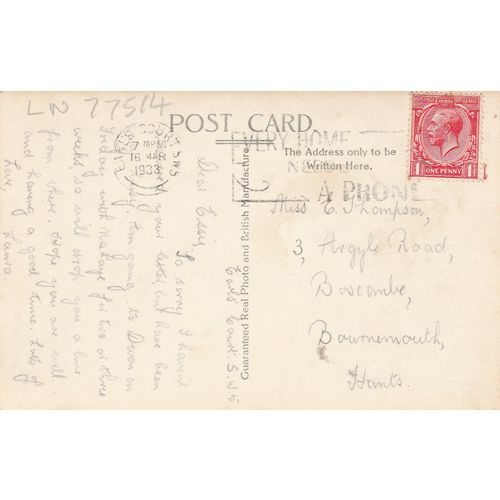 L 2 77514
POST CARD
EARLS COURT S.W.5
7 PM
16 MAR
1933
EVERY HOME
NEEDS
A PHONE
POSTAGE REVENUE
ONE PENNY
The Address only to be
Written Here.
Guaranteed Real Photo and British Manufacture
Miss E. Thompson,
3, Argyle Road,
Boscombe,
Bournemouth,
Hants.
Earls Court. S.W.5.
Dear Essie,
So sorry I haven't
your letter, but have been
busy. Am going to Devon on
Friday with for two or three
weeks so will drop you a line
from there. Hope you are well
and having a good time. Lots of
Love, Laura.